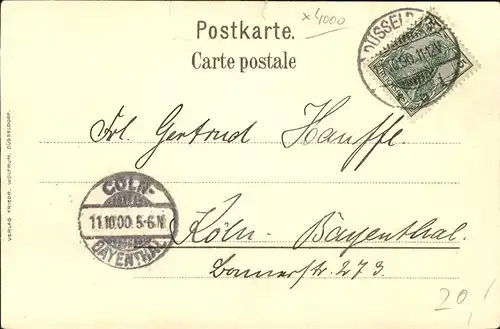 x4000
Postkarte.
Carte postale
DÜSSELD
Frl. Gertrud Hauffe
CÖLN-
11.10.00. 5-6N
BAYENTHAL
Köln-Bayenthal.
Bonnerstr. 273.
VERLAG FRIEDR. WOLFRUM, DÜSSELDORF.
20,